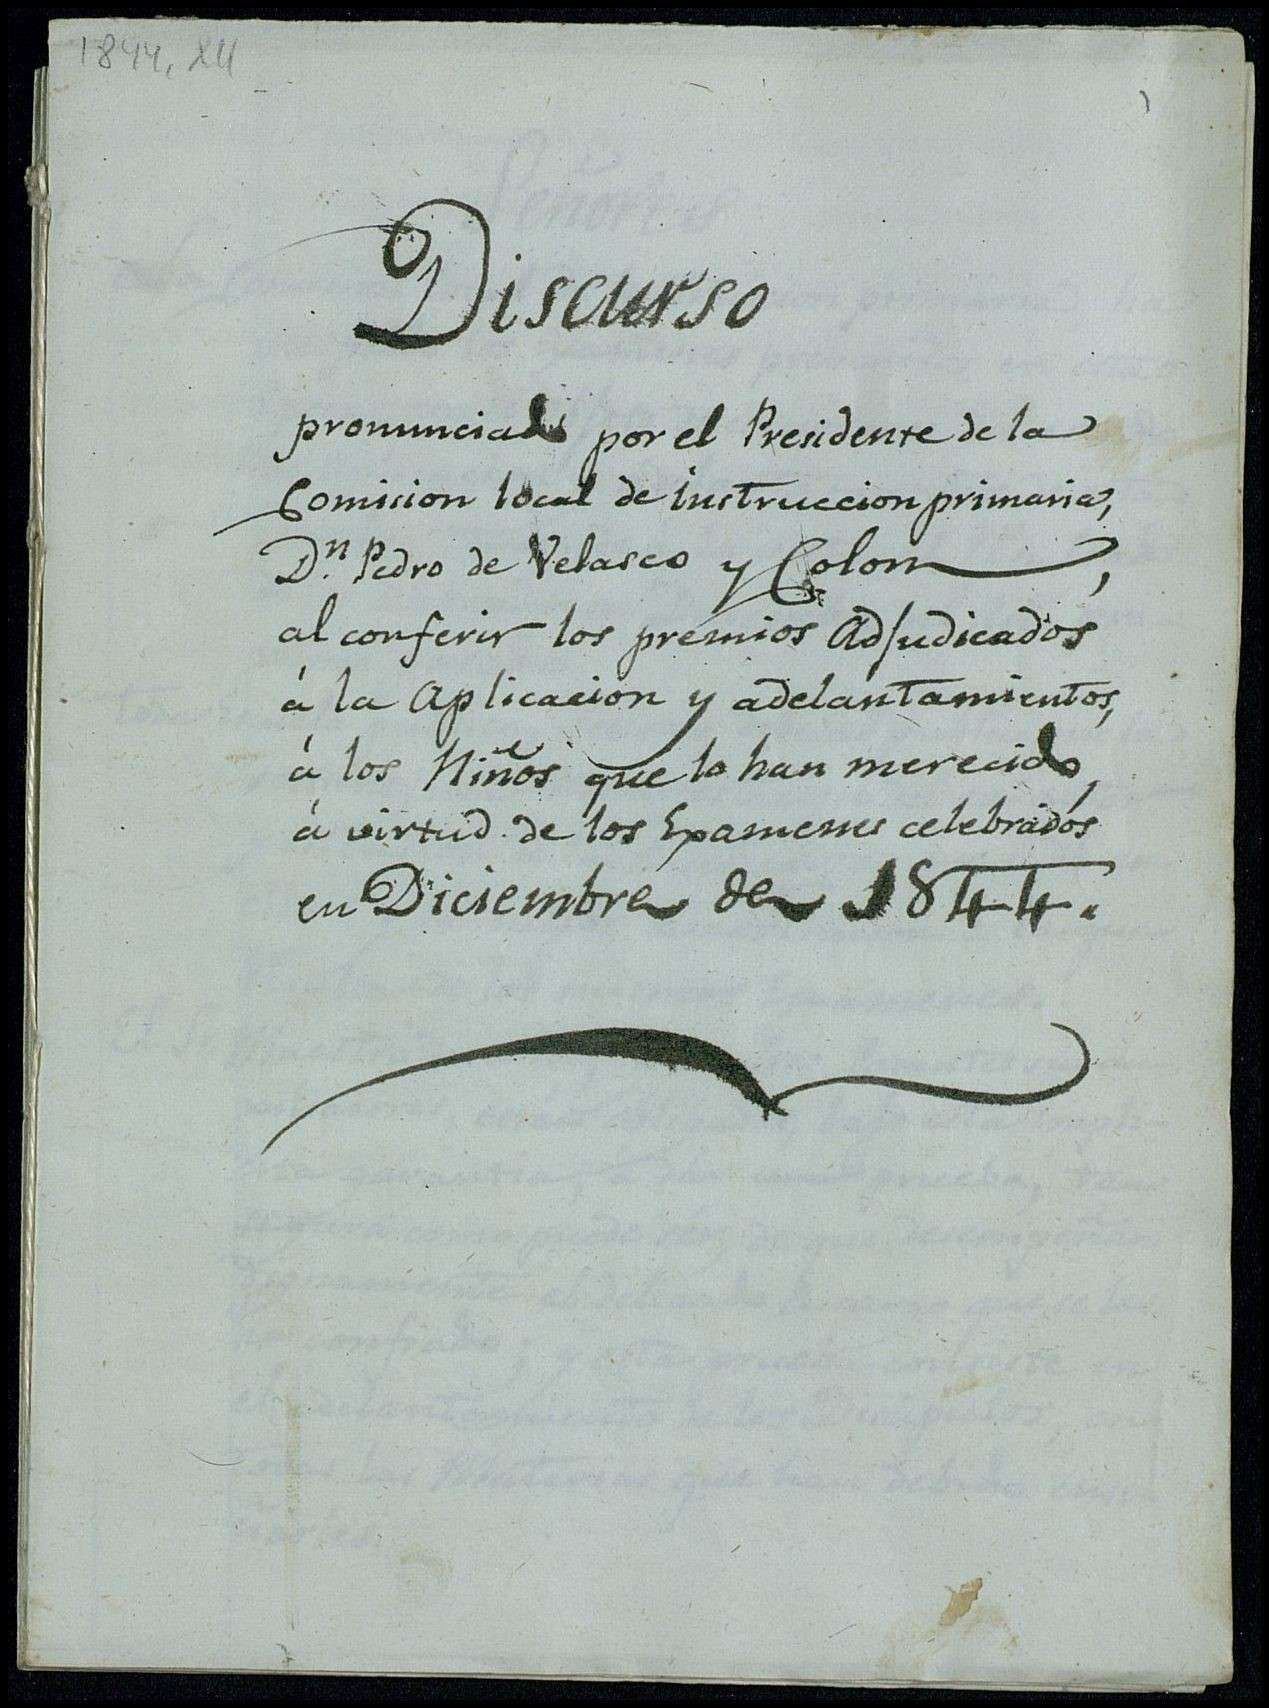 1844, XII
Discurso
pronunciado por el Presidente de la
Comision local de instruccion primaria,
D.n Pedro de Velasco y Colom,
al conferir los premios Adjudicados
á la Aplicacion y adelantamientos,
á los Niños que lo han merecido,
á virtud de los Examenes celebrados
en Diciembre de 1844.